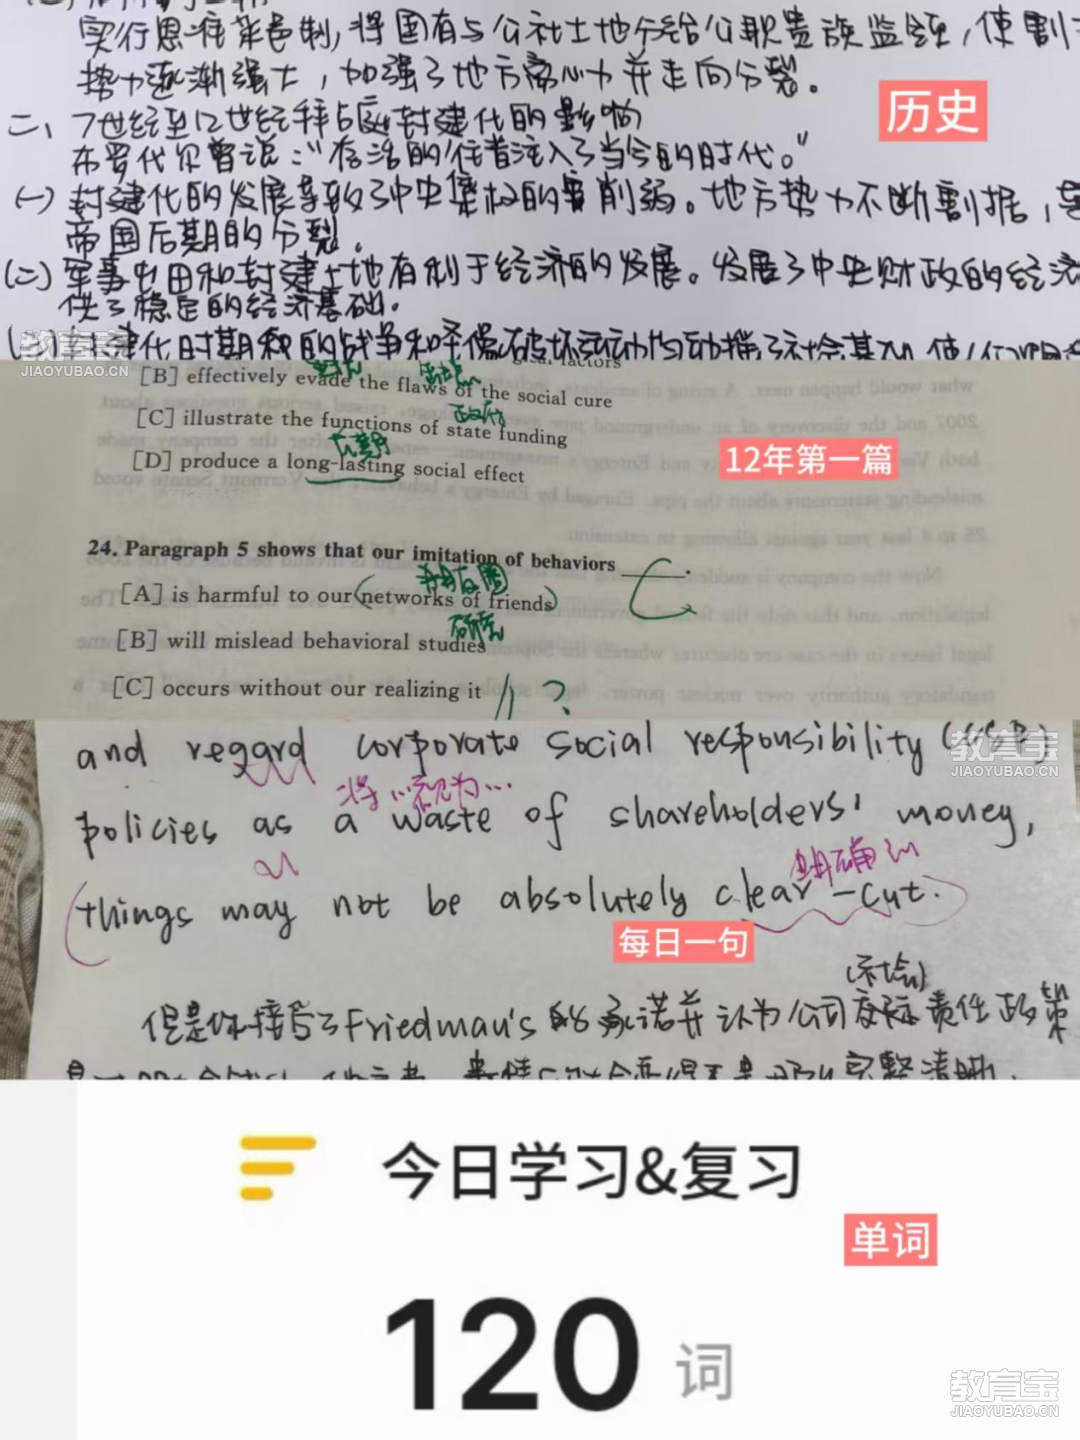 实行恩准采邑制,将国有与公社土地分给公职贵族监领,使割
势力逐渐强大,加强了地方离心力并走向分裂。
历史
二、7世纪至12世纪拜占庭封建化的影响
布罗代尔曾说:“存活的往昔注入了当今的时代。”
(一)封建化的发展导致了中央集权的削弱。地方势力不断割据,导
帝国后期的分裂。
(二)军事屯田和封建土地有利于经济的发展。发展了中央财政的经济
供了稳定的经济基础。
封建化时期
教育宝
JIAOYUBAO.CN
factors
[B] effectively evade the flaws of the social cure
政府
[C] illustrate the functions of state funding
长期
[D] produce a long-lasting social effect
12年第一篇
24. Paragraph 5 shows that our imitation of behaviors ______.
C
[A] is harmful to our (networks of friends)
研究
[B] will mislead behavioral studies
[C] occurs without our realizing it ?
and regard corporate social responsibility (CSR)
教育宝
JIAOYUBAO.CN
将…视为…
policies as a waste of shareholders' money,
明确的
(things may not be absolutely clear-cut.)
每日一句
(社会)
但是你接受了Friedman's 的承诺并认为公司责任政策
今日学习&复习
单词
120 词
教育宝
JIAOYUBAO.CN